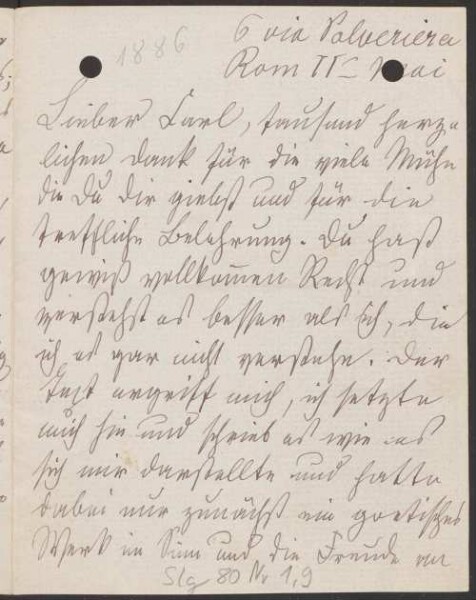 1886
6 via Polveriera
Rom 11ᵗ Mai
Lieber Carl, tausend herz-
lichen Dank für die viele Mühe
die Du Dir giebst und für die
treffliche Belehrung. Du hast
gewiß vollkommen Recht und
verstehst es besser als ich, die
ich es gar nicht verstehe. Der
Text ergriff mich, ich setzte
mich hin und schrieb es wie es
sich mir darstellte und hatte
dabei nur zunächst ein poetisches
Werk im Sinn und die Freude an
Slg 80 Nr 1,9